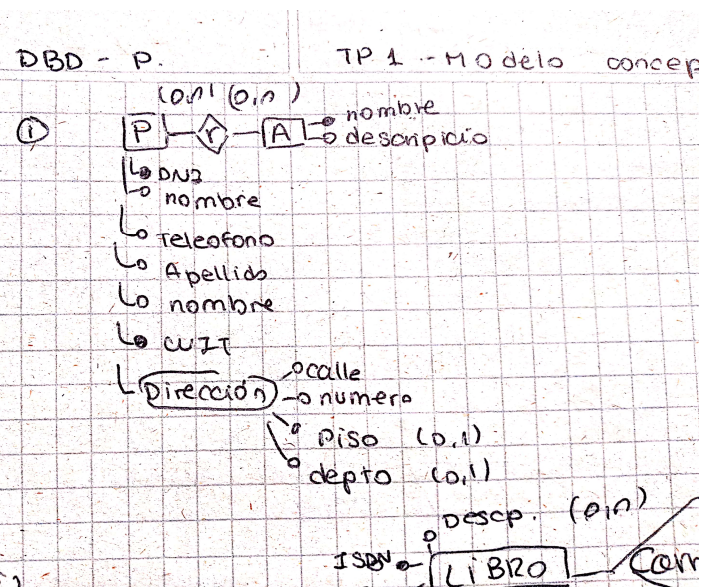 DBD - P. TP 1 - Modelo concep
(0,n) (0,n)
① P r A nombre
descripicio
DNI
nombre
Teleofono
Apellido
nombre
CUIT
Dirección calle
numero
Piso (0,1)
depto (0,1)
Descp. (0,n)
ISBN LIBRO Com